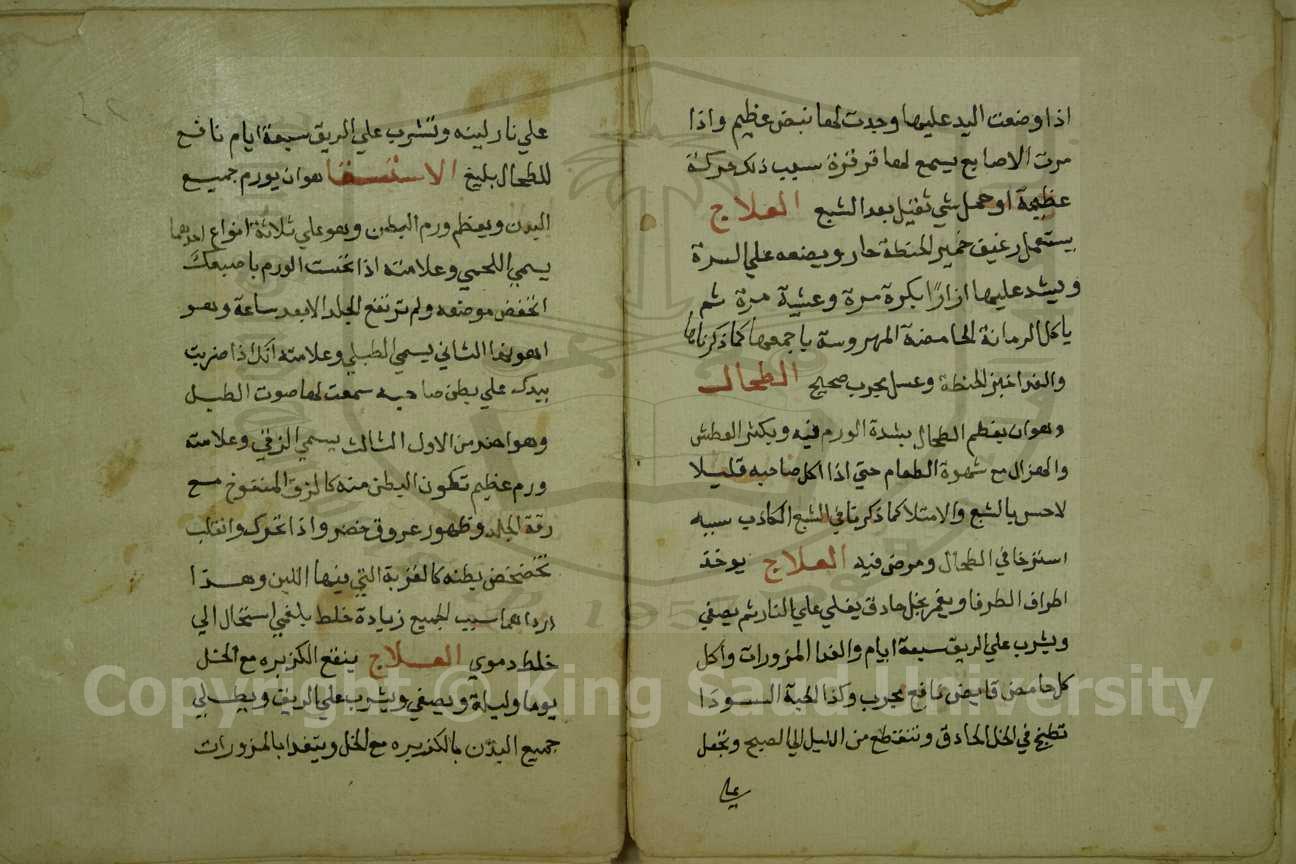 اذا وضعت اليد عليها وجدت لها نبض عظيم واذا
مرت الاصابع يسمع لها قرقرة سبب ذلك حركة
عظيمة او حمل شي ثقيل بعد الشبع العلاج
يستعمل رغيف خمير الحنطة حار ويضعه علي السرة
ويشد عليها ازارًا بكرة مرة وعشية مرة ثم
ياكل الرمانة الحامضة المهروسة باجمعها كما ذكرناها
والغدا خبز الحنطة وعسل مجرب صحيح الطحال
وهو ان يعظم الطحال بشدة الورم فيه ويكثر العطش
والهزال مع شهوة الطعام حتي اذا اكل صاحبه قليلا
لاحس بالشبع والامتلا كما ذكرنا في الشبع الكاذب سببه
استرخا في الطحال ومرض فيه العلاج يوخذ
اطراف الطرفا ويغمر بخل حادق يغلي علي النار ثم يصفي
ويشرب علي الريق سبعة ايام والغدا المزورات واكل
كل حامض قابض نافع مجرب وكذا الحبة السودا
تطبخ في الخل الحادق وتنقطع من الليل الي الصبح وتجعل
علي
علي نار لينه وتشرب علي الريق سبعة ايام نافع
للطحال بليغ الاستسقا هو ان يورم جميع
البدن ويعظم ورم البطن وهو علي ثلاثة انواع احدهما
يسمي اللحمي وعلامته اذا نخست الورم باصبعك
انخفض موضعه ولم ترتفع الجلد الا بعد ساعة وهو
اهونها الثاني يسمي الطبلي وعلامته انك اذا ضربت
بيدك علي بطن صاحبه سمعت لها صوت الطبل
وهو اضر من الاول الثالث يسمي الزقي وعلامته
ورم عظيم تكون البطن منه كالزق المنفوخ مع
رقة الجلد وظهور عروق خضر واذا تحرك وانقلب
تخضخض بطنه كالقربة التي فيها اللبن وهذا
ارداهما سبب الجميع زيادة خلط بلغمي استحال الي
خلط دموي العلاج ينقع الكزبره مع الخل
يوما وليلة ويصفي ويشرب علي الريق ويطلي
جميع البدن بالكزبره مع الخل ويتغدا بالمزورات
Copyright © King Saud University
1957